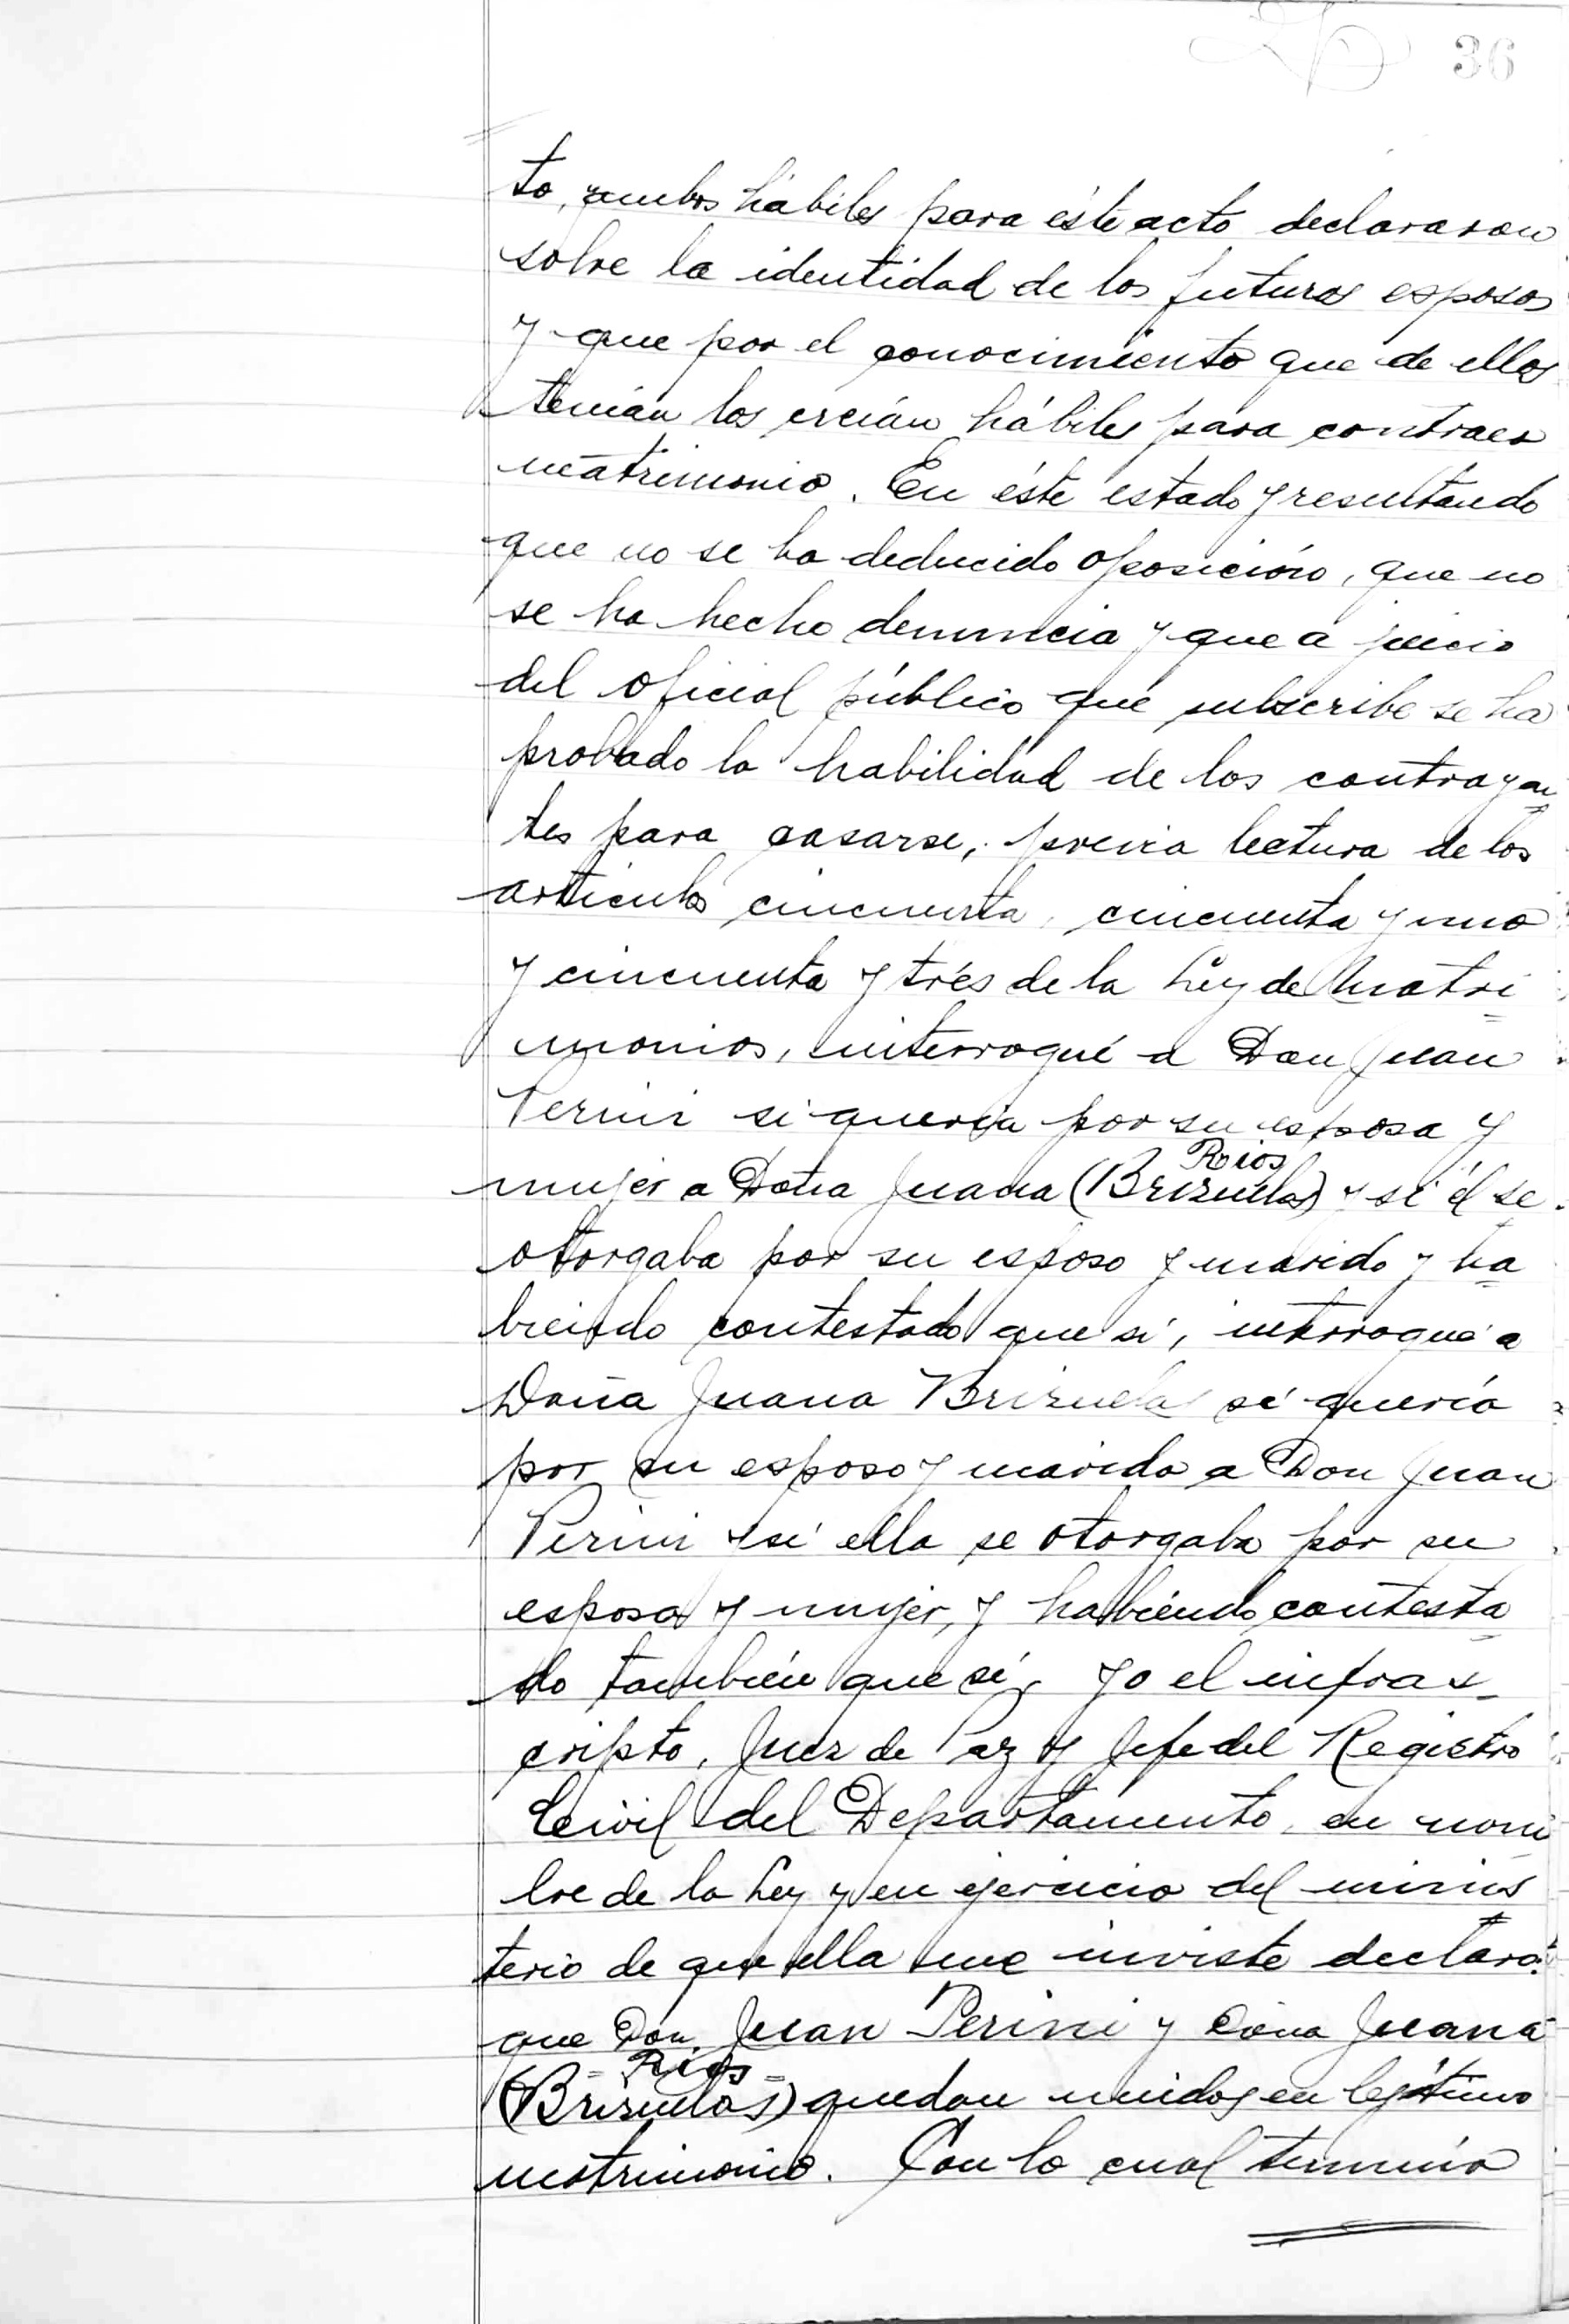 36
to, ambos hábiles para éste acto declararon
sobre la identidad de los futuros esposos
y que por el conocimiento que de ellos
tenían los creían hábiles para contraer
matrimonio. En éste estado y resultando
que no se ha deducido oposición, que no
se ha hecho denuncia y que a juicio
del oficial público que subscribe se ha
probado la habilidad de los contrayen=
tes para casarse, previa lectura de los
artículos cincuenta, cincuenta y uno
y cincuenta y trés de la Ley de Matri=
monios, interrogué a Don Juan
Perini si quería por su esposa y
Rios
mujer a Doña Juana (Brizuelas) y si él se
otorgaba por su esposo y marido y ha=
biendo contestado que sí, interrogué a
Doña Juana Brizuela si quería
por su esposo y marido a Don Juan
Perini y si ella se otorgaba por su
esposa y mujer, y habiendo contesta=
do también que sí, yo el infras=
cripto, Juez de Paz y Jefe del Registro
Civil del Departamento, en nom=
bre de la Ley y en ejercicio del minis=
terio de que ella me inviste declaro:
que Don Juan Perini y Doña Juana
= Rios =
(Brizuelas) quedan unidos en legítimo
matrimonio. Con lo cual terminó